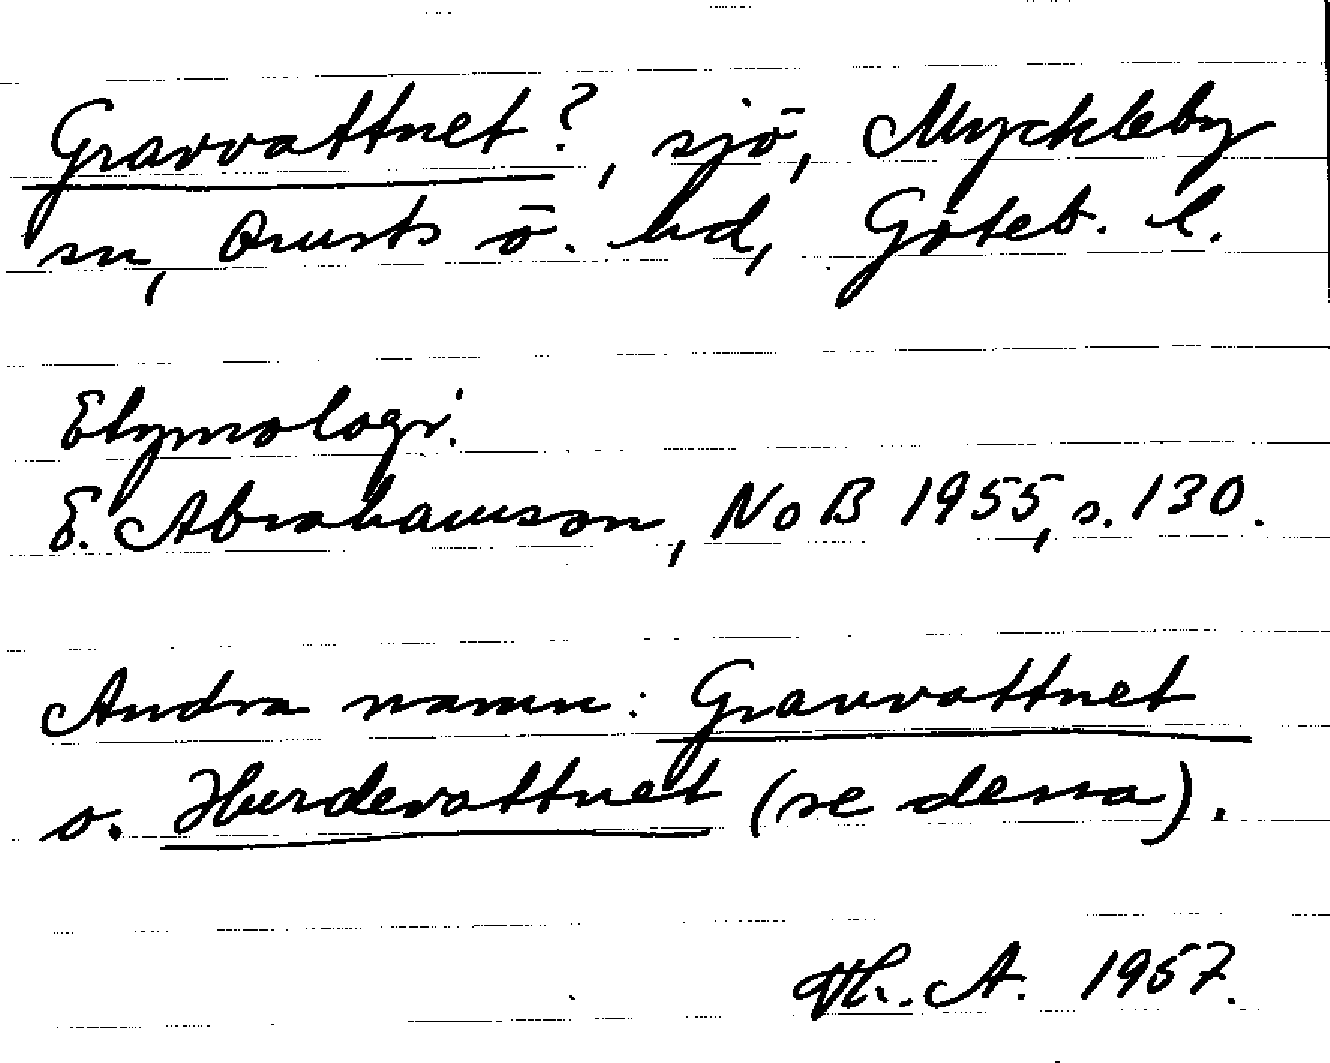 Gravvattnet?, sjö, Myckleby
sn, Orusts ö. hd, Göteb. l.
Etymologi.
E. Abrahamson, NoB 1955, s. 130.
Andra namn: Grauvattnet
o. Hurdevattnet (se dessa).
Th. A. 1957.